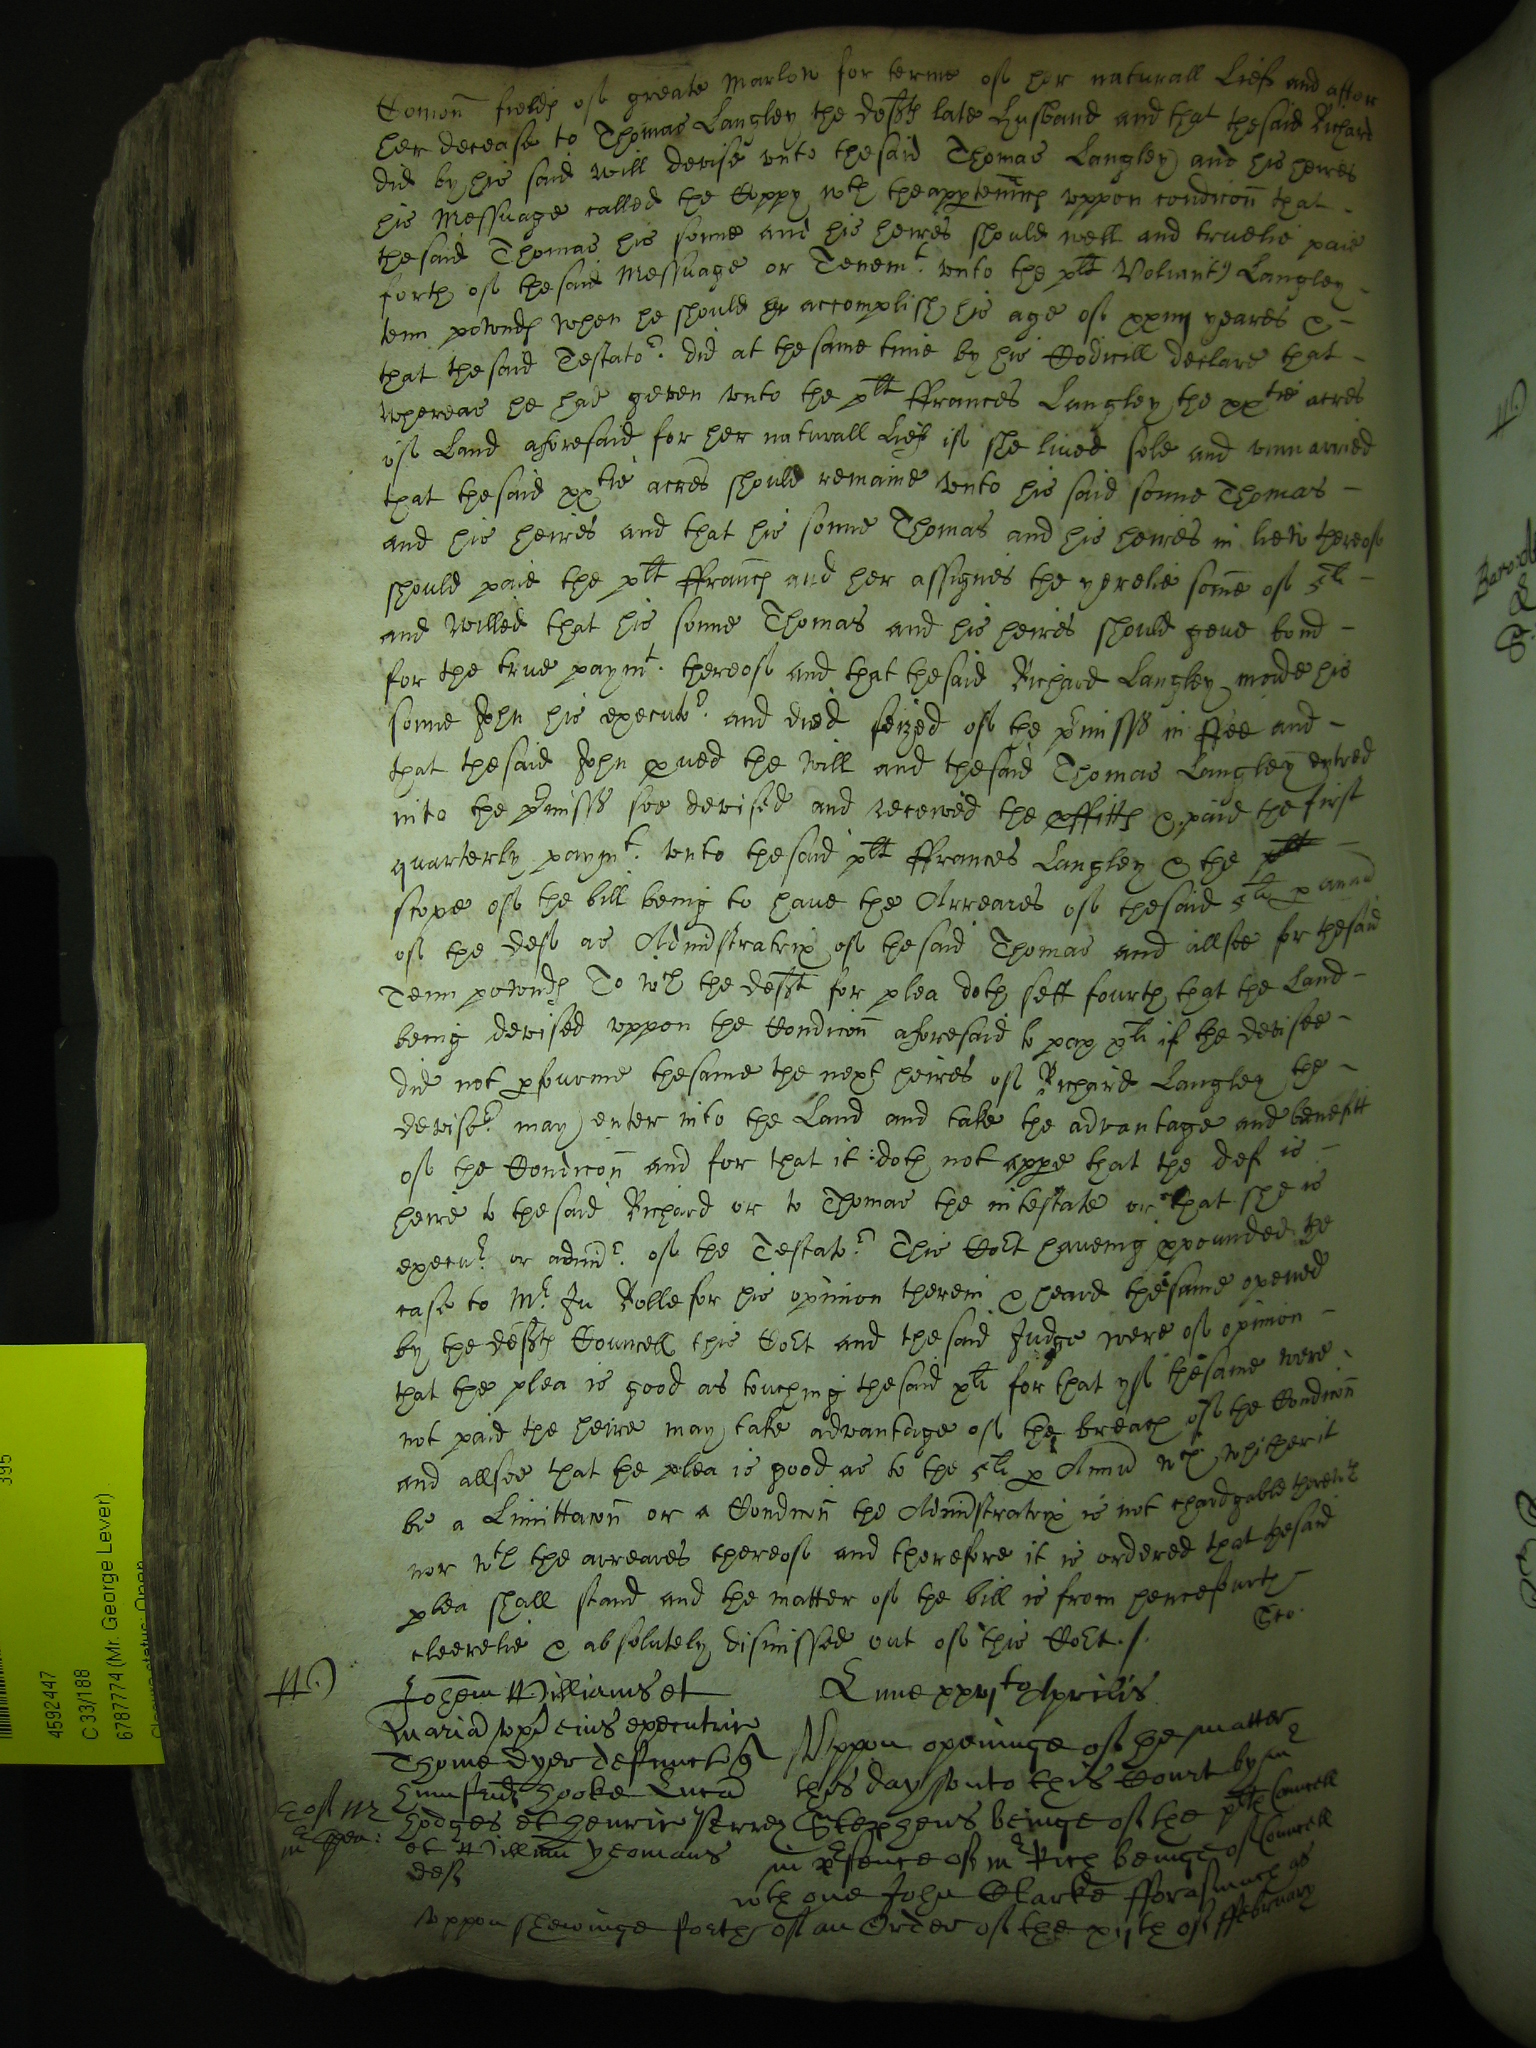 Comon fields of greate Marlow for terme of her naturall Lief and after
her decease to Thomas Langley the deftes late Husband and that thesaid Richard
did by his said will devise vnto thesaid Thomas Langley and his heires
his Messuage called the Coppy wth theapptennces vppon condicon that
thesaid Thomas his sonne and his heires should well and truelie paie
forth of thesaid Messuage or Tenemt. vnto the plt Langley
tenn pownds when he should accomplish his age of xxiiij yeares &
that thesaid Testator did at thesame time by his Codicill declare that
whereas he had geven vnto the plt ffrances Langley the xxtie acres
of Land aforesaid for her naturall Lief if she lived sole and vnmarried
that thesaid xxtie acres should remaine vnto his said sonne Thomas
and his heires and that his sonne Thomas and his heires in liew thereof
should paie the plt ffraunces and her assignes the yerelie some of 5li
and willed that his sonne Thomas and his heires should geve bond
for the true paymt. thereof and that thesaid Richard Langley made his
sonne John his executor and died seized of the pmisses in ffee and
that thesaid John pved the will and thesaid Thomas Langley entred
into the pmisses soe devised and received the pffitts & paid the first
quarterly paymt. vnto thesaid plt ffrances Langley & the
scope of the bill being to have the Arreares of thesaid 5li p annu
of the def as Administratrix of thesaid Thomas and allsoe for thesaid
Tenn pownds To wch the deft for plea doth sett fourth that the Land
being devised vppon the Condicon aforesaid to pay xli if the devisee
did not pfourme thesame the next heires of Richard Langley the
devisor may enter into the Land and take the advantage and benefitt
of the Condicon and for that it doth not appe that the def is
heire to thesaid Richard or to Thomas the intestate or that she is
execur or admr of the Testator This Cort haveing ppounded the
case to Mr. Ju Rolle for his opinion therein & heard thesame opened
by the deftes Councell this Cort and thesaid Judge were of opinion
that the plea is good as touching thesaid xli for that yf thesame were
not paid the heire may take advantage of the breach of the Condicon
and allsoe that the plea is good as to the 5li p Annu wch whither it
be a Limittacon or a Condicon the Administratrix is not chardgable therewth
nor wth the arreares thereof and therefore it is ordered that thesaid
plea shall stand and the matter of the bill is from hencefurth
cleerelie & absolutely dismissed out of this Cort.
Johem Williams et
Maria vx eius executric
Thome Dyer defunct
Humfrid Hooke Luca
Hodges et Henric
et Willm Yeomans
def
Lune xxvjto Aprilis
Vppon openinge of the matter
this day vnto this Court by Mr
Stephens beinge of the plts Councell
in psence of Mr Rich beinge of Councell
wth one John Clarke fforasmuch as
vppon shewinge forth of an Order of the xijth of ffebruary
4592447
C 33/188
6787774 (Mr. George Lever)
395